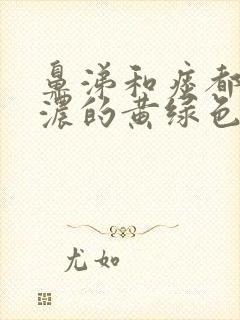 鼻涕和痰都
浓的黄绿色
尤如